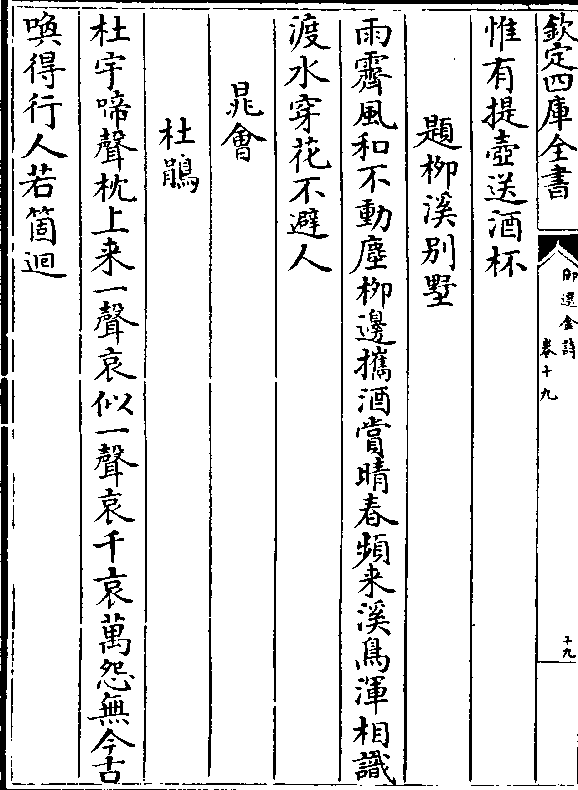 欽定四庫全書
御選金詩
卷十九
十九
惟有提壺送酒杯
題柳溪別墅
雨霽風和不動塵柳邊攜酒賞晴春頻来溪鳥渾相識
渡水穿花不避人
晁會
杜鵑
杜宇啼聲枕上来一聲哀似一聲哀千哀萬怨無今古
喚得行人若箇迴